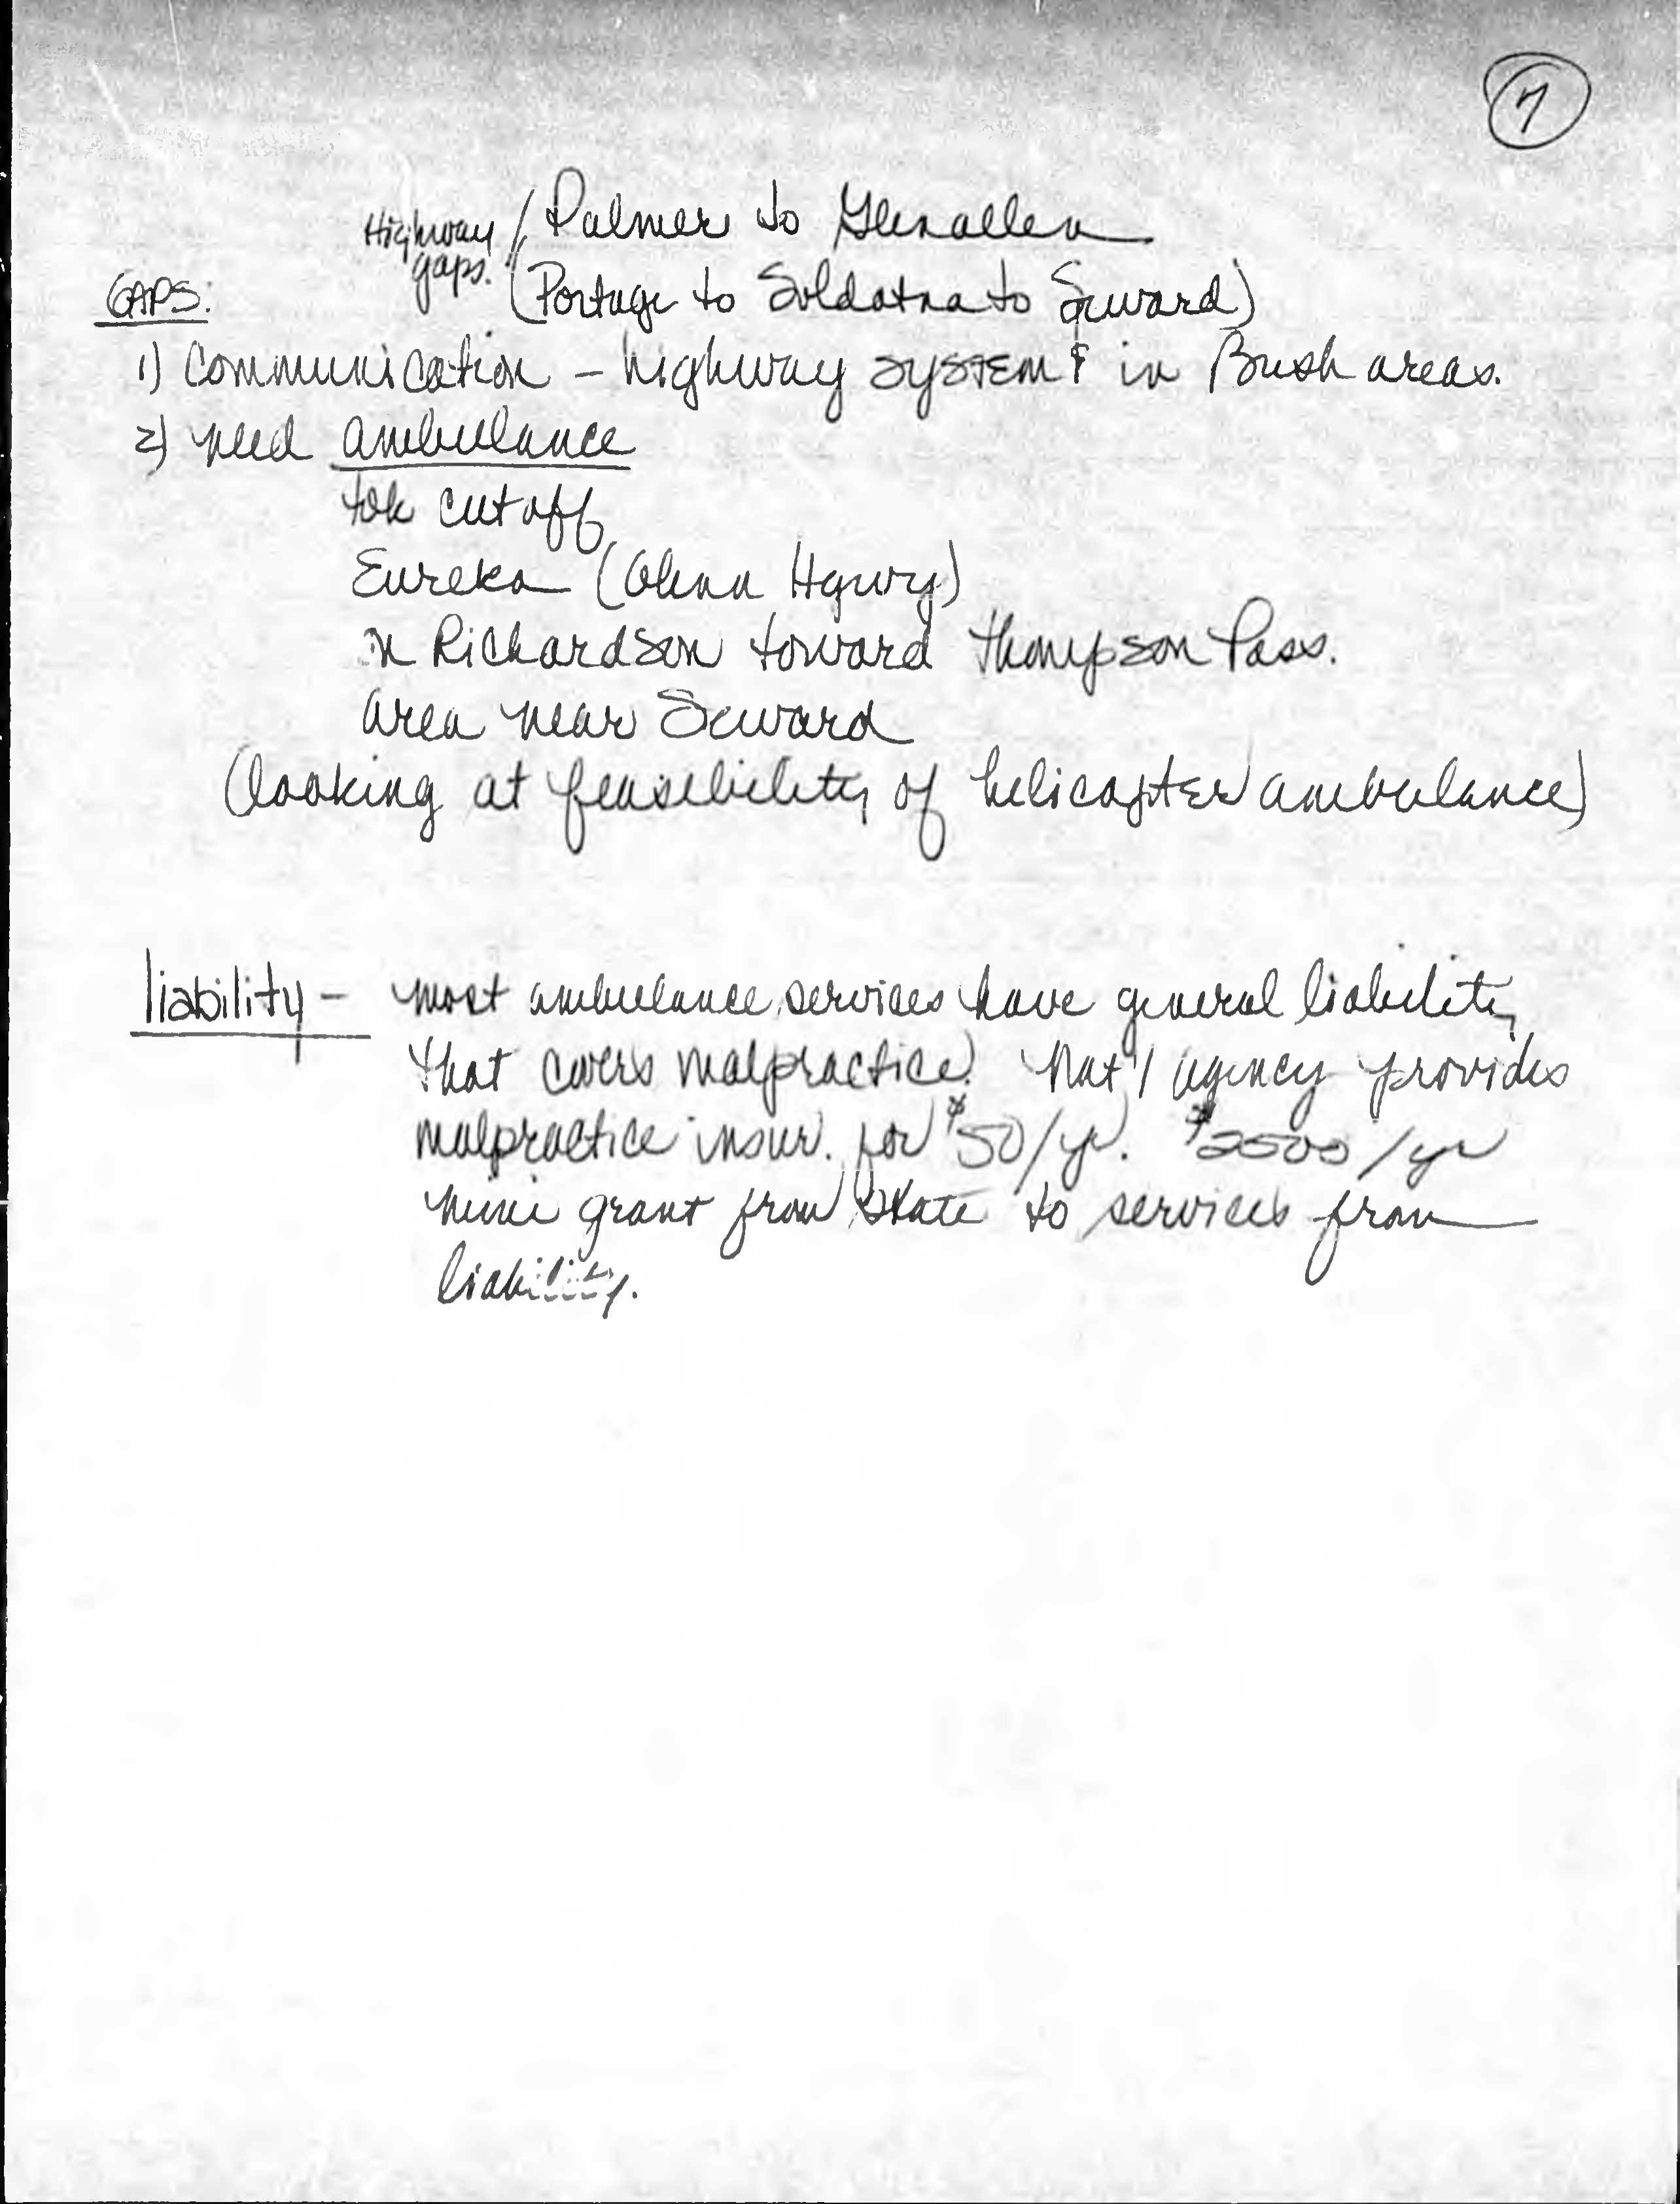 7
Highway gaps. (Palmer to Glenallen
(Portage to Soldotna to Seward)
GAPS:
1) Communication - highway system & in Bush areas.
2) need ambulance
tok cutoff
Eureka (Glenn Hgwy)
n Richardson toward Thompson Pass.
area near Seward
(looking at feasibility of helicopter ambulance)
liability - most ambulance services have general liability
that covers malpractice. Nat'l agency provides
malpractice insur. for $50/yr. $2500/yr
mini grant from State to services from
liability.